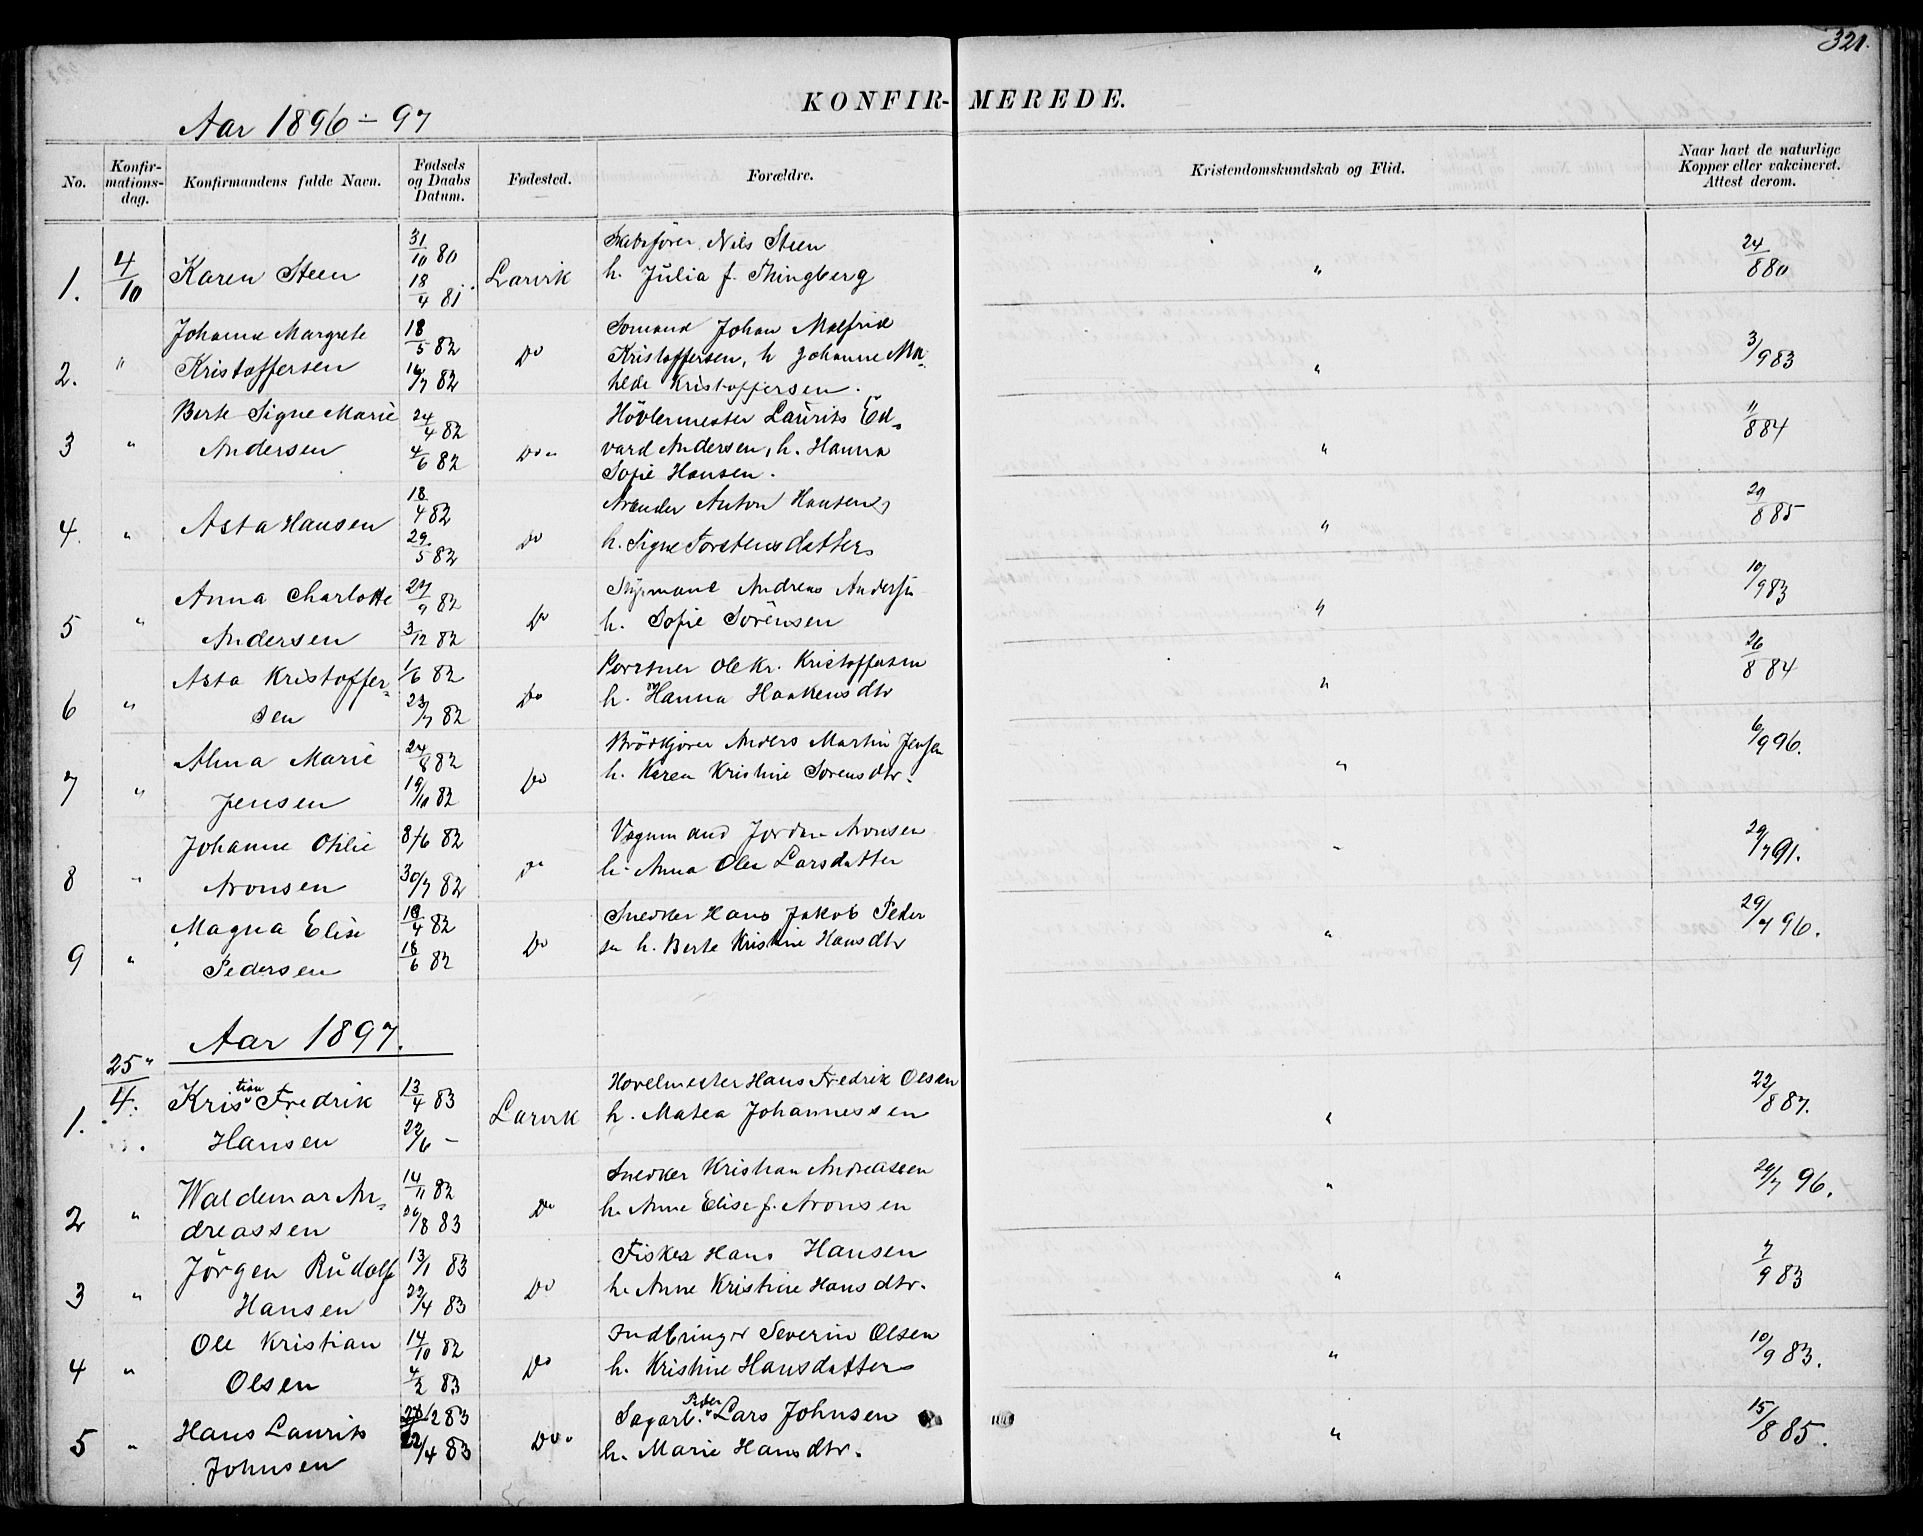 321.
KONFIR-MEREDE.
Aar 1896-97
No. Konfir-mations-dag. Konfirmandens fulde Navn. Fødsels og Daabs Datum. Fødested. Forældre. Kristendomskundskab og Flid. Naar havt de naturlige Kopper eller vakcineret. Attest derom.
1. 4/10 Karen Steen 31/10 80 18/4 81 Larvik Skibsfører Nils Steen
h. Julia f. Thingberg " 24/8 80
2. " Johanne Margrete 18/5 82 Do Sømand Johan Malfrid
Kristoffersen 16/7 82 Kristoffersen, h Johanne Ma-
tilde Kristoffersen. " 3/9 83
3 " Berte Signe Marie 24/4 82 Høvlermester Laurits Ed-
Andersen 4/6 82 Do " vard Andersen, h. Hanna
Sofie Hansen. " 11/8 84
4. " Asta Hansen 18/4 82 29/5 82 Do Anton Hansen,
h. Signe Torstensdatter " 29/8 85
5 " Anna Charlotte 27/9 82 Do Styrmand Andreas Andersen
Andersen 3/12 82 h. Sofie Sørensen " 10/9 83
6 " Asta Kristoffer- 1/6 82 Do Ole Kr. Kristoffersen
sen 23/7 82 h. Hanna Haakensdtr " 26/8 84
7 " Alma Marie 24/8 82 Do Brødkjører Anders Martin Jensen
Jensen 19/10 82 h. Karen Kristine Sorensdtr. " 6/9 96.
8 " Johanne Otilie 8/6 82 Do Vognmand Jordan Aronsen
Aronsen 30/7 82 h. Anna Olea Larsdatter " 29/7 91.
9 " Magna Elise 18/4 82 Do Snedker Hans Jakob Peder
Pedersen 18/6 82 sen h. Berte Kristine Hansdtr " 29/7 96.
Aar 1897.
1. 25/4. Kristian Fredrik 13/4 83 Larvik Hovelmester Hans Fredrik Olsen
Hansen 22/6 - h. Matea Johannessen " 22/8 87.
2 " Waldemar An- 14/11 82 Do Snedker Kristian Andreassen
dreassen 26/8 83 h. Anne Elise f. Aronsen " 29/7 96.
3 " Jörgen Rudolf 13/1 83 Do Fisker Hans Hansen
Hansen 22/4 83 h. Anne Kristine Hansdtr. " 7/9 83
4 " Ole Kristian 14/10 82 Do Indbringer Severin Olsen
Olsen 4/2 83 h. Kristine Hansdatter " 10/9 83.
5 " Hans Laurits 2 83 Do " Sagarb. Peder Lars Johnsen
Johnsen 22/4 83 h. Marie Hansdtr. " 15/8 85.